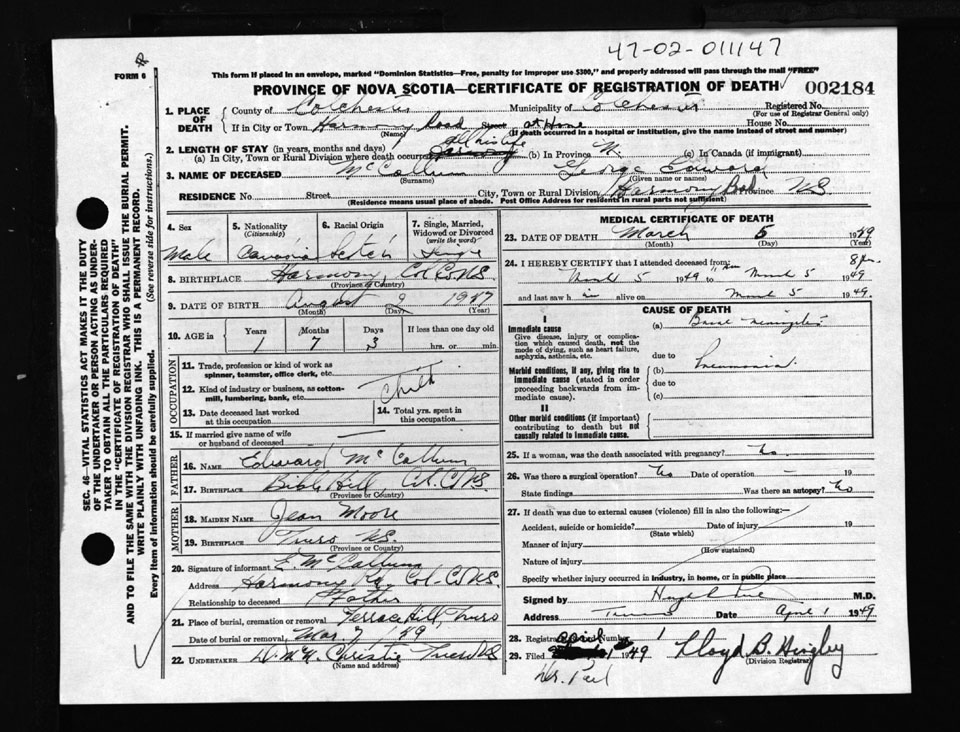 47-02-011147
FORM 6
This form if placed in an envelope, marked "Dominion Statistics—Free, penalty for improper use $300," and properly addressed will pass through the mail "FREE"
PROVINCE OF NOVA SCOTIA—CERTIFICATE OF REGISTRATION OF DEATH
002184
SEC. 46—VITAL STATISTICS ACT MAKES IT THE DUTY
OF THE UNDERTAKER OR PERSON ACTING AS UNDER-
TAKER TO OBTAIN ALL THE PARTICULARS REQUIRED
IN THE "CERTIFICATE OF REGISTRATION OF DEATH"
AND TO FILE THE SAME WITH THE DIVISION REGISTRAR WHO SHALL ISSUE THE BURIAL PERMIT.
WRITE PLAINLY WITH UNFADING INK. THIS IS A PERMANENT RECORD.
Every item of information should be carefully supplied. (See reverse side for instructions.)
1. PLACE OF DEATH County of Colchester Municipality of Colchester Registered No.
(For use of Registrar General only)
If in City or Town Harmony Road Street at Home House No.
(Name) (If death occurred in a hospital or institution, give the name instead of street and number)
2. LENGTH OF STAY (in years, months and days) all his life
(a) In City, Town or Rural Division where death occurred (b) In Province (c) In Canada (if immigrant)
3. NAME OF DECEASED McCallum George Edward
(Surname) (Given name or names)
RESIDENCE No. Street City, Town or Rural Division Harmony Road Province N.S.
(Residence means usual place of abode. Post Office Address for residents in rural parts not sufficient)
4. Sex Male
5. Nationality (Citizenship) Canadian
6. Racial Origin Scotch
7. Single, Married, Widowed or Divorced (write the word) Single
8. BIRTHPLACE Harmony, Col. Co. N.S.
(Province or Country)
9. DATE OF BIRTH August 2 1947
(Month) (Day) (Year)
10. AGE in Years Months Days If less than one day old
1 7 3 hrs. or min.
OCCUPATION
11. Trade, profession or kind of work as spinner, teamster, office clerk, etc.
12. Kind of industry or business, as cotton-mill, lumbering, bank, etc. Child
13. Date deceased last worked at this occupation
14. Total yrs. spent in this occupation
15. If married give name of wife or husband of deceased —
FATHER
16. NAME Edward McCallum
17. BIRTHPLACE Bible Hill, Col. Co. N.S.
(Province or Country)
MOTHER
18. MAIDEN NAME Jean Moore
19. BIRTHPLACE Truro N.S.
(Province or Country)
20. Signature of informant E. McCallum
Address Harmony Rd. Col. Co. N.S.
Relationship to deceased Father
21. Place of burial, cremation or removal Terrace Hill, Truro
Date of burial or removal Mar. 7 / 49
22. UNDERTAKER Christie Truro N.S.
(Name and address)
MEDICAL CERTIFICATE OF DEATH
23. DATE OF DEATH March 5 1949
(Month) (Day) (Year)
24. I HEREBY CERTIFY that I attended deceased from: 8 pm.
March 5 1949 March 5 1949
and last saw him alive on March 5 1949.
CAUSE OF DEATH
I
Immediate cause
Give disease, injury or complication which caused death, not the mode of dying, such as heart failure, asphyxia, asthenia, etc.
(a) Basal meningitis
due to
Morbid conditions, if any, giving rise to immediate cause (stated in order proceeding backwards from immediate cause).
(b) Pneumonia.
due to
(c)
II
Other morbid conditions (if important) contributing to death but not causally related to immediate cause.
25. If a woman, was the death associated with pregnancy? No.
26. Was there a surgical operation? No Date of operation — 19
State findings Was there an autopsy? No
27. If death was due to external causes (violence) fill in also the following:—
Accident, suicide or homicide? Date of injury 19
(State which)
Manner of injury
(How sustained)
Nature of injury
Specify whether injury occurred in industry, in home, or in public place
Signed by M.D.
Address Truro Date April 1 1949
28. Registration Number 1
29. Filed April 1 1949 Lloyd B. Hingley
(Division Registrar)